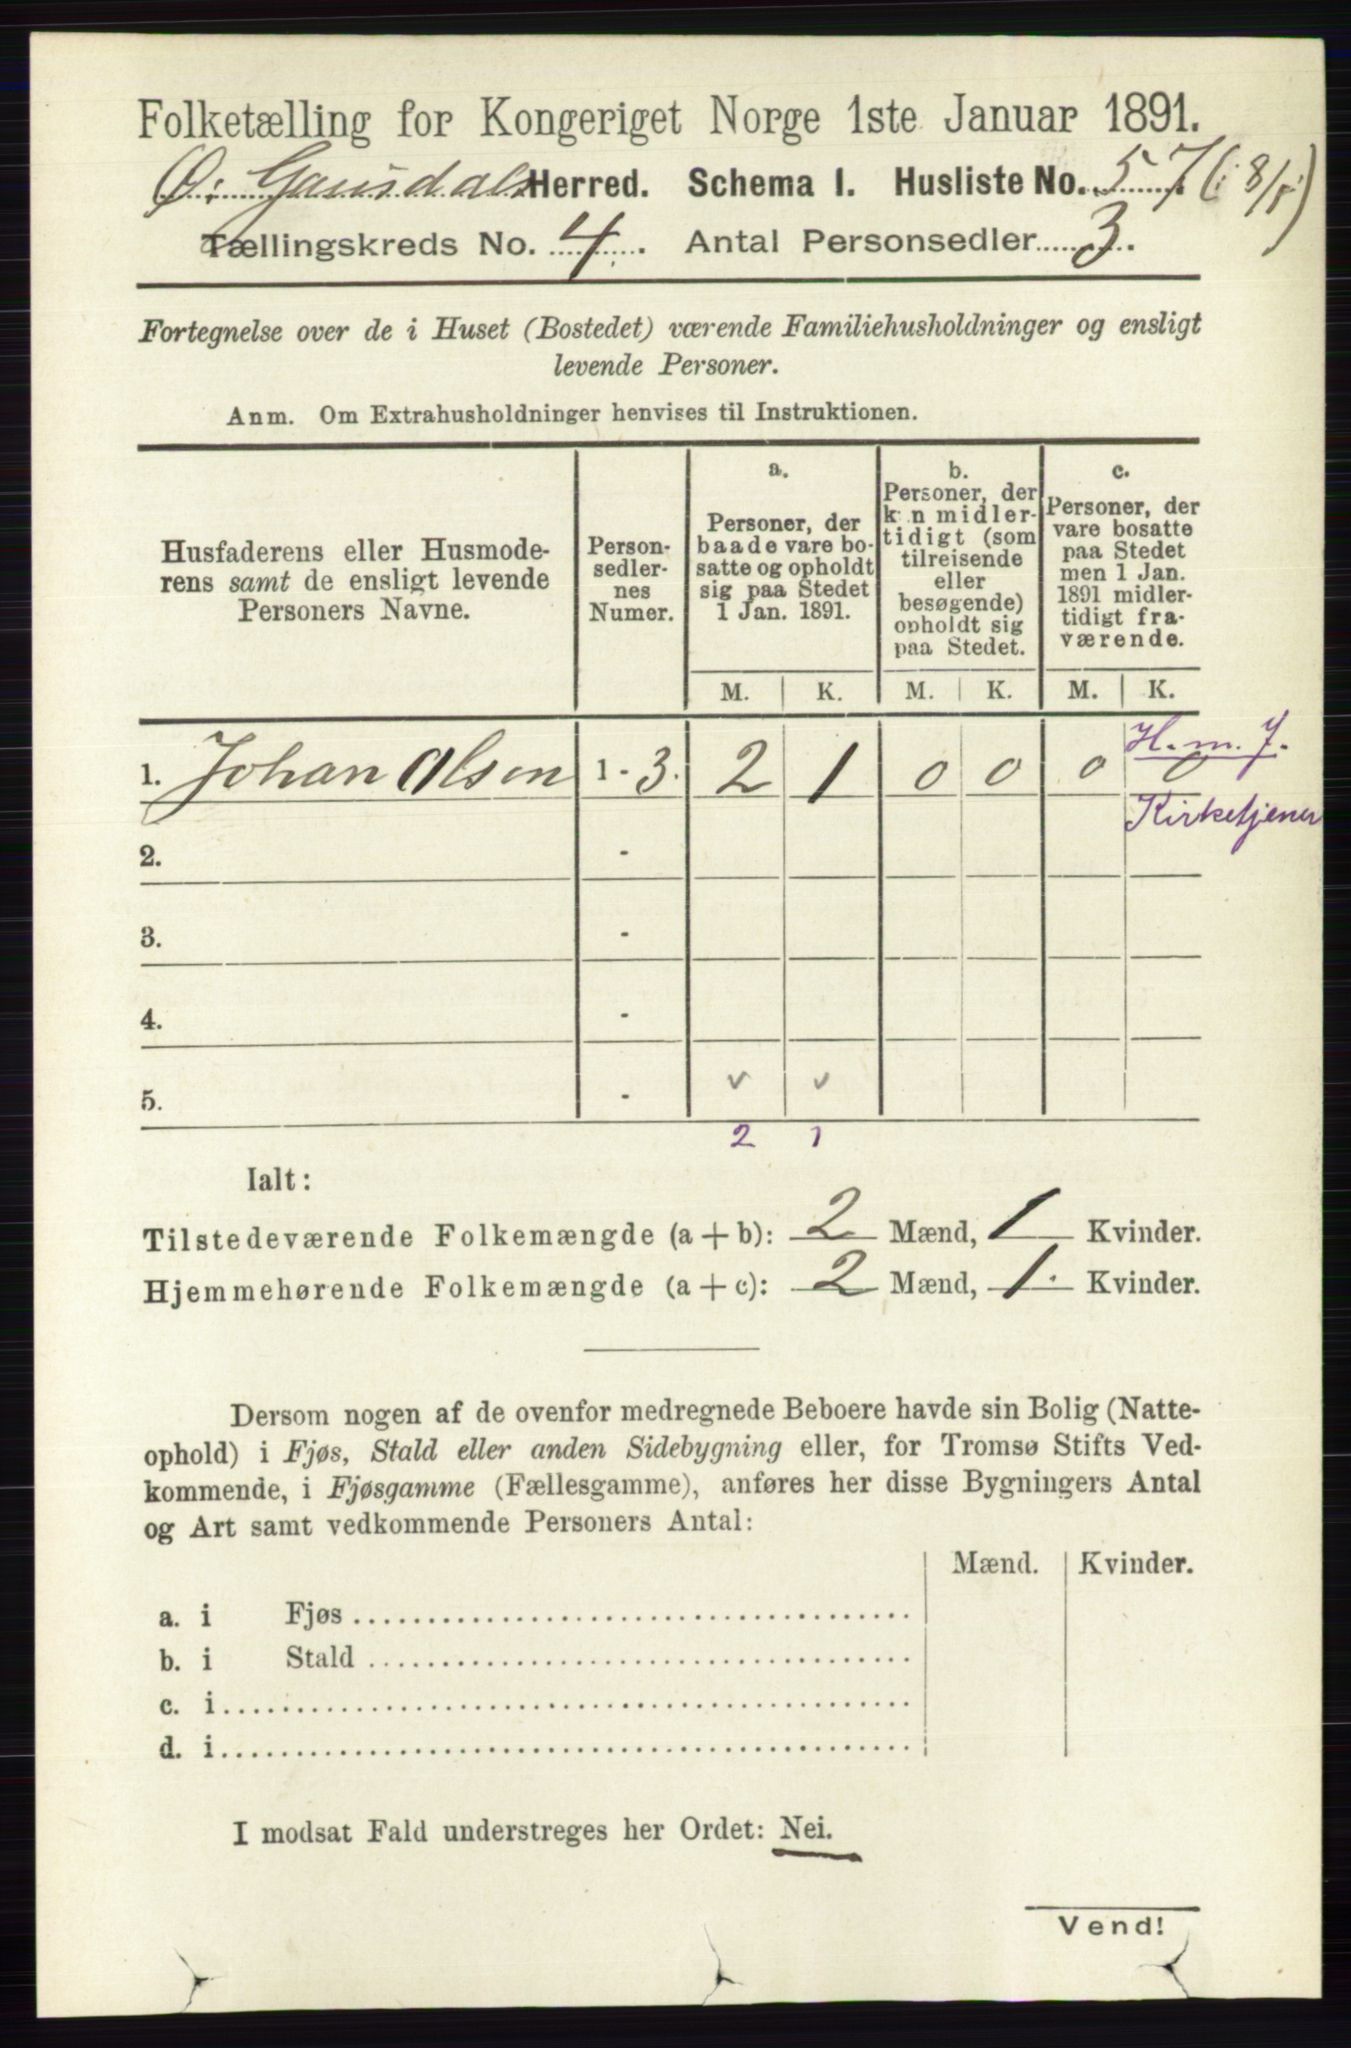 Folketælling for Kongeriget Norge 1ste Januar 1891.
Ø. Gausdals Herred. Schema I. Husliste No. 57 (i 8/1)
Tællingskreds No. 4. Antal Personsedler 3.
Fortegnelse over de i Huset (Bostedet) værende Familiehusholdninger og ensligt
levende Personer.
Anm. Om Extrahusholdninger henvises til Instruktionen.
Husfaderens eller Husmode-
rens samt de ensligt levende
Personers Navne.
Person-
sedler-
nes
Numer.
a.
Personer, der
baade vare bo-
satte og opholdt
sig paa Stedet
1 Jan. 1891.
b.
Personer, der
kun midler-
tidigt (som
tilreisende
eller
besøgende)
opholdt sig
paa Stedet.
c.
Personer, der
vare bosatte
paa Stedet
men 1 Jan.
1891 midler-
tidigt fra-
værende.
M. K. M. K. M. K.
H. m. J.
1. Johan Olsen 1 - 3. 2 1 0 0 0 0
Kirketjener
2. -
3. -
4. -
5. - v v
2 1
Ialt:
Tilstedeværende Folkemængde (a + b): 2 Mænd, 1 Kvinder.
Hjemmehørende Folkemængde (a + c): 2 Mænd, 1. Kvinder.
Dersom nogen af de ovenfor medregnede Beboere havde sin Bolig (Natte-
ophold) i Fjøs, Stald eller anden Sidebygning eller, for Tromsø Stifts Ved-
kommende, i Fjøsgamme (Fællesgamme), anføres her disse Bygningers Antal
og Art samt vedkommende Personers Antal:
Mænd. Kvinder.
a. i Fjøs
b. i Stald
c. i
d. i
I modsat Fald understreges her Ordet: Nei.
Vend!